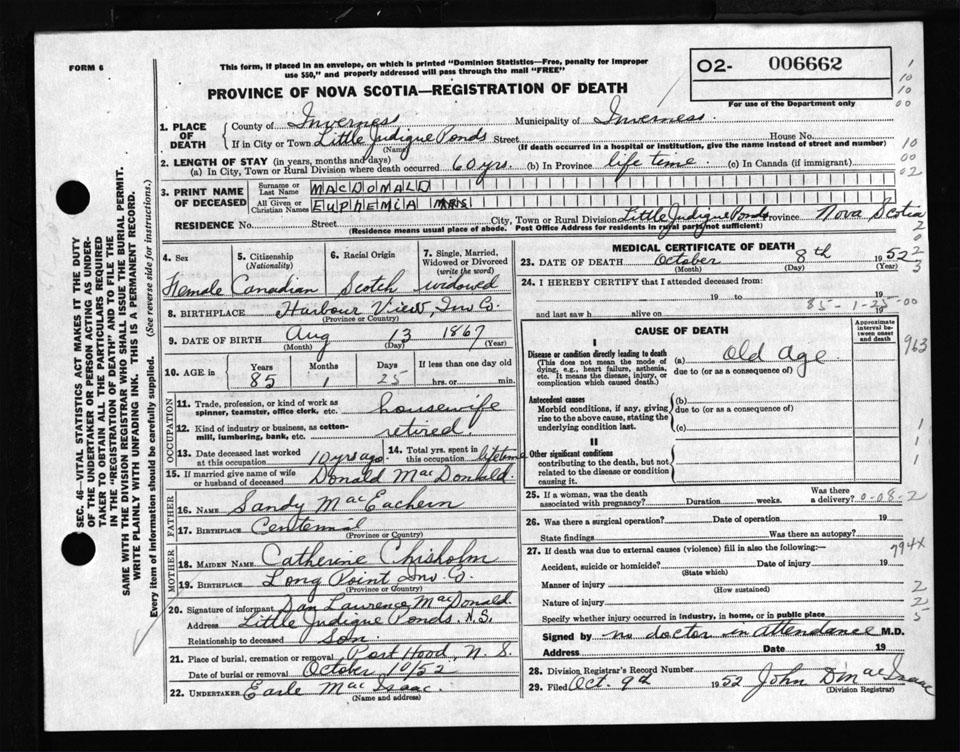 FORM 6
This form, if placed in an envelope, on which is printed "Dominion Statistics—Free, penalty for improper
use $50," and properly addressed will pass through the mail "FREE"
PROVINCE OF NOVA SCOTIA—REGISTRATION OF DEATH
02- 006662
For use of the Department only
1. PLACE OF DEATH
County of Inverness Municipality of Inverness.
If in City or Town Little Judique Ponds Street House No.
(Name) (If death occurred in a hospital or institution, give the name instead of street and number)
2. LENGTH OF STAY (in years, months and days)
(a) In City, Town or Rural Division where death occurred 60 yrs. (b) In Province life time. (c) In Canada (if immigrant)
3. PRINT NAME OF DECEASED
Surname or Last Name MACDONALD
All Given or Christian Names EUPHEMIA MRS
RESIDENCE No. Street City, Town or Rural Division Little Judique Ponds Province Nova Scotia
(Residence means usual place of abode. Post Office Address for residents in rural parts not sufficient)
4. Sex 5. Citizenship (Nationality) 6. Racial Origin 7. Single, Married, Widowed or Divorced (write the word)
Female Canadian Scotch widowed
8. BIRTHPLACE Harbour View, Inv Co.
(Province or Country)
9. DATE OF BIRTH Aug 13 1867
(Month) (Day) (Year)
10. AGE in Years Months Days If less than one day old
85 1 25 hrs. or min.
OCCUPATION
11. Trade, profession, or kind of work as spinner, teamster, office clerk, etc. housewife
12. Kind of industry or business, as cotton-mill, lumbering, bank, etc. retired.
13. Date deceased last worked at this occupation 10 yrs ago 14. Total yrs. spent in this occupation lifetime
15. If married give name of wife or husband of deceased Donald MacDonald.
FATHER
16. NAME Sandy MacEachern
17. BIRTHPLACE
(Province or Country)
MOTHER
18. MAIDEN NAME Catherine Chisholm
19. BIRTHPLACE Long Point Inv Co.
(Province or Country)
20. Signature of informant Dan Lawrence MacDonald.
Address Little Judique Ponds. N.S.
Relationship to deceased Son.
21. Place of burial, cremation or removal Port Hood, N.S.
Date of burial or removal October 10/52
22. UNDERTAKER Earle MacIsaac.
(Name and address)
MEDICAL CERTIFICATE OF DEATH
23. DATE OF DEATH October 8th 1952
(Month) (Day) (Year)
24. I HEREBY CERTIFY that I attended deceased from:
19 to 19
85-1-25-00
and last saw h alive on 19
CAUSE OF DEATH
Approximate interval between onset and death
I
Disease or condition directly leading to death
(This does not mean the mode of dying, e.g., heart failure, asthenia, etc. It means the disease, injury, or complication which caused death.)
(a) Old Age
due to (or as a consequence of)
963
Antecedent causes
Morbid conditions, if any, giving rise to the above cause, stating the underlying condition last.
(b)
due to (or as a consequence of)
(c)
II
Other significant conditions
contributing to the death, but not related to the disease or condition causing it.
25. If a woman, was the death associated with pregnancy? Duration weeks. Was there a delivery? 0-08-2
26. Was there a surgical operation? Date of operation 19
State findings Was there an autopsy?
27. If death was due to external causes (violence) fill in also the following:—
794X
Accident, suicide or homicide? Date of injury 19
(State which)
Manner of injury
(How sustained)
Nature of injury
Specify whether injury occurred in industry, in home, or in public place
Signed by no doctor in attendance M.D.
Address Date 19
28. Division Registrar's Record Number
29. Filed Oct. 9th 1952 John D MacIsaac
(Division Registrar)
SEC. 46—VITAL STATISTICS ACT MAKES IT THE DUTY
OF THE UNDERTAKER OR PERSON ACTING AS UNDER-
TAKER TO OBTAIN ALL THE PARTICULARS REQUIRED
IN THE "REGISTRATION OF DEATH" AND TO FILE THE
SAME WITH THE DIVISION REGISTRAR WHO SHALL ISSUE THE BURIAL PERMIT.
WRITE PLAINLY WITH UNFADING INK. THIS IS A PERMANENT RECORD.
Every item of information should be carefully supplied. (See reverse side for instructions.)